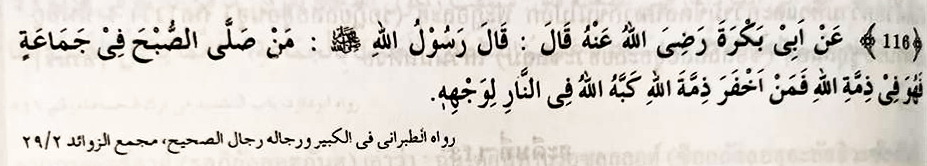 ﴿116﴾ عَنْ اَبِیْ بَكْرَةَ رَضِیَ اللهُ عَنْهُ قَالَ : قَالَ رَسُوْلُ اللهِ ﷺ : مَنْ صَلَّی الصُّبْحَ فِیْ جَمَاعَةٍ
فَهُوَ فِیْ ذِمَّةِ اللهِ فَمَنْ اَخْفَرَ ذِمَّةَ اللهِ كَبَّهُ اللهُ فِی النَّارِ لِوَجْهِهٖ.
رواه الطبرانی فی الكبیر ورجاله رجال الصحیح، مجمع الزوائد ٢٩/٢